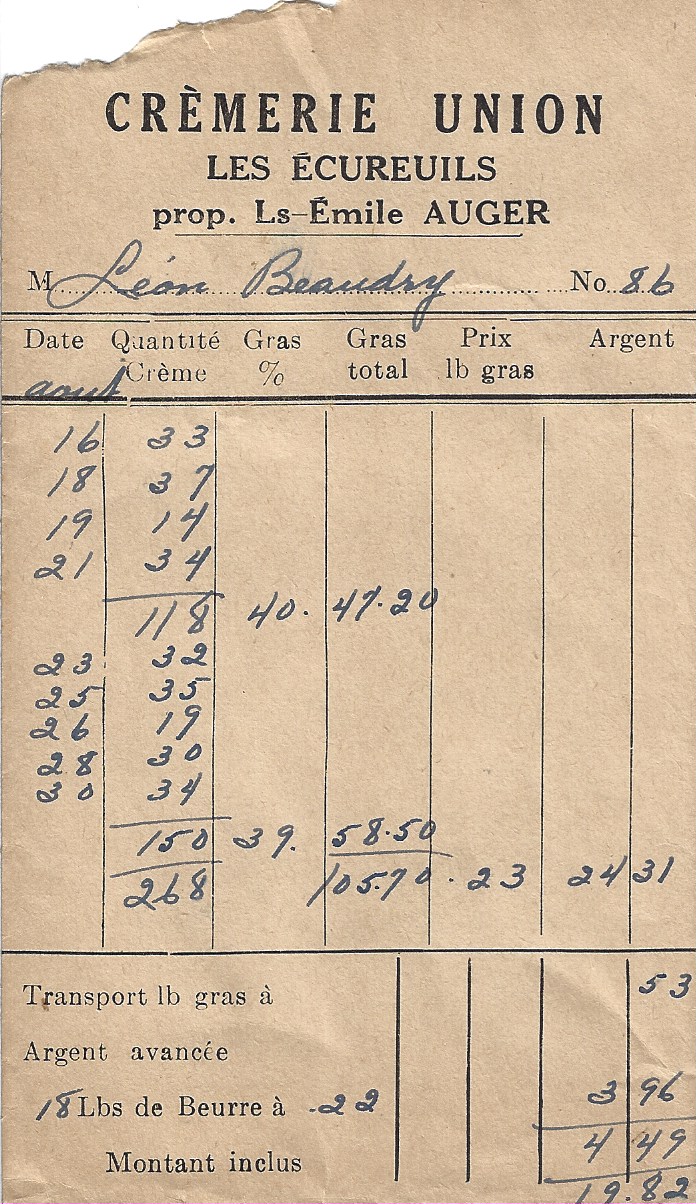 CRÈMERIE UNION
LES ÉCUREUILS
prop. Ls-Émile AUGER
M Léon Beaudry No. 86
Date Quantité Gras Gras Prix Argent
Crème % total lb gras
aout
16 33
18 37
19 14
21 34
118 40. 47.20
23 32
25 35
26 19
28 30
30 34
150 39. 58.50
268 105.70 .23 24 31
Transport lb gras à 53
Argent avancée
18 Lbs de Beurre à .22 3 96
4 49
Montant inclus
19.82